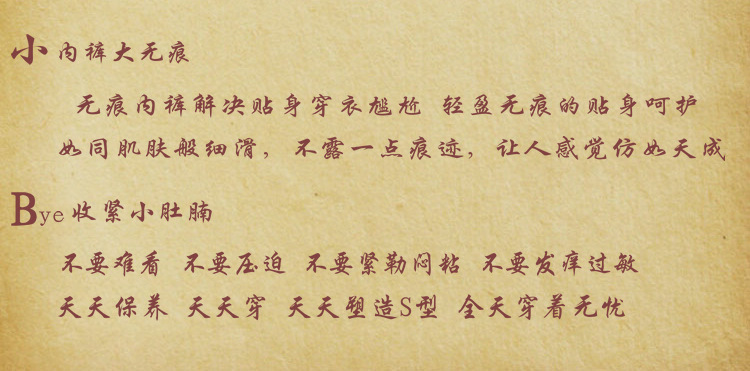 小内裤大无痕
无痕内裤解决贴身穿衣尴尬 轻盈无痕的贴身呵护
如同肌肤般细滑，不露一点痕迹，让人感觉仿如天成
Bye收紧小肚腩
不要难看 不要压迫 不要紧勒闷粘 不要发痒过敏
天天保养 天天穿 天天塑造S型 全天穿着无忧